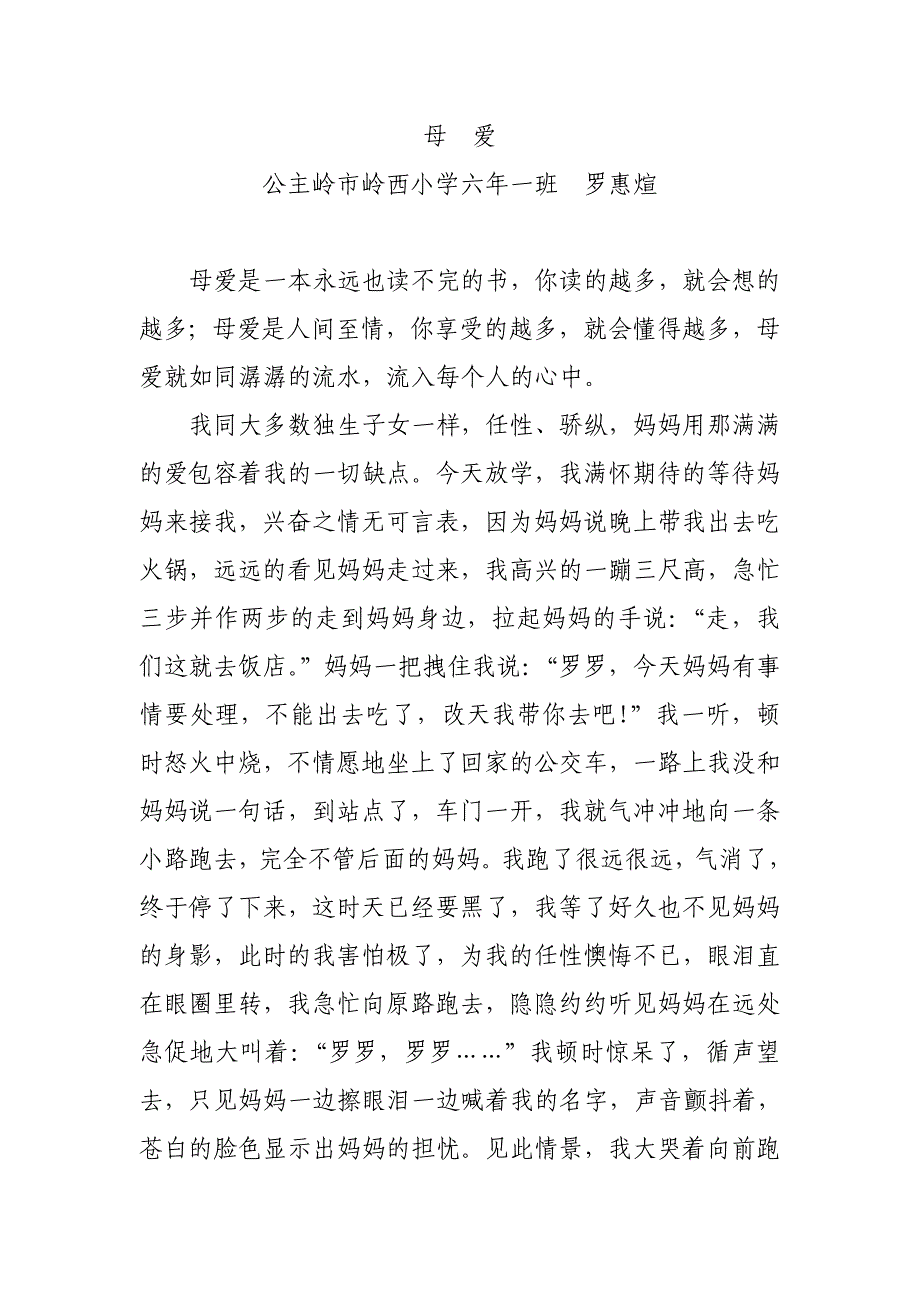 母　爱
公主岭市岭西小学六年一班　罗惠煊
母爱是一本永远也读不完的书，你读的越多，就会想的
越多；母爱是人间至情，你享受的越多，就会懂得越多，母
爱就如同潺潺的流水，流入每个人的心中。
我同大多数独生子女一样，任性、骄纵，妈妈用那满满
的爱包容着我的一切缺点。今天放学，我满怀期待的等待妈
妈来接我，兴奋之情无可言表，因为妈妈说晚上带我出去吃
火锅，远远的看见妈妈走过来，我高兴的一蹦三尺高，急忙
三步并作两步的走到妈妈身边，拉起妈妈的手说：“走，我
们这就去饭店。”妈妈一把拽住我说：“罗罗，今天妈妈有事
情要处理，不能出去吃了，改天我带你去吧！”我一听，顿
时怒火中烧，不情愿地坐上了回家的公交车，一路上我没和
妈妈说一句话，到站点了，车门一开，我就气冲冲地向一条
小路跑去，完全不管后面的妈妈。我跑了很远很远，气消了，
终于停了下来，这时天已经要黑了，我等了好久也不见妈妈
的身影，此时的我害怕极了，为我的任性懊悔不已，眼泪直
在眼圈里转，我急忙向原路跑去，隐隐约约听见妈妈在远处
急促地大叫着：“罗罗，罗罗……”我顿时惊呆了，循声望
去，只见妈妈一边擦眼泪一边喊着我的名字，声音颤抖着，
苍白的脸色显示出妈妈的担忧。见此情景，我大哭着向前跑